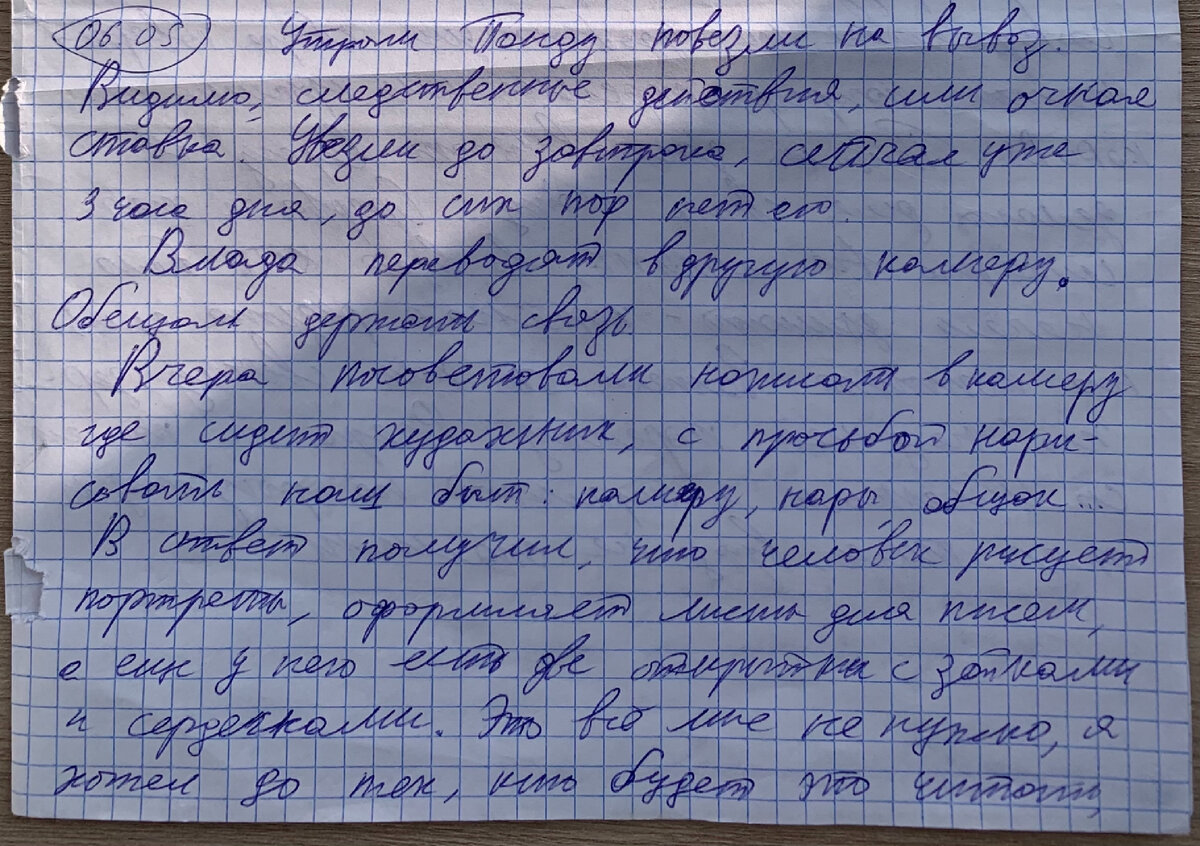 06 05 Утром Панду повезли на вывоз.
Видимо, следственные действия, или очная
ставка. Увезли до завтрака, сейчас уже
3 часа дня, до сих пор нет его.
Влада переводят в другую камеру.
Обещал держать связь
Вчера посоветовали написать в камеру
где сидит художник, с просьбой нари-
совать наш быт: камеру, нары, общак...
В ответ получил, что человек рисует
портреты, оформляет листы для писем,
а еще у него есть две открытки с зайками
и сердечками. Это всё мне не нужно, я
хотел до тех, кто будет это читать,